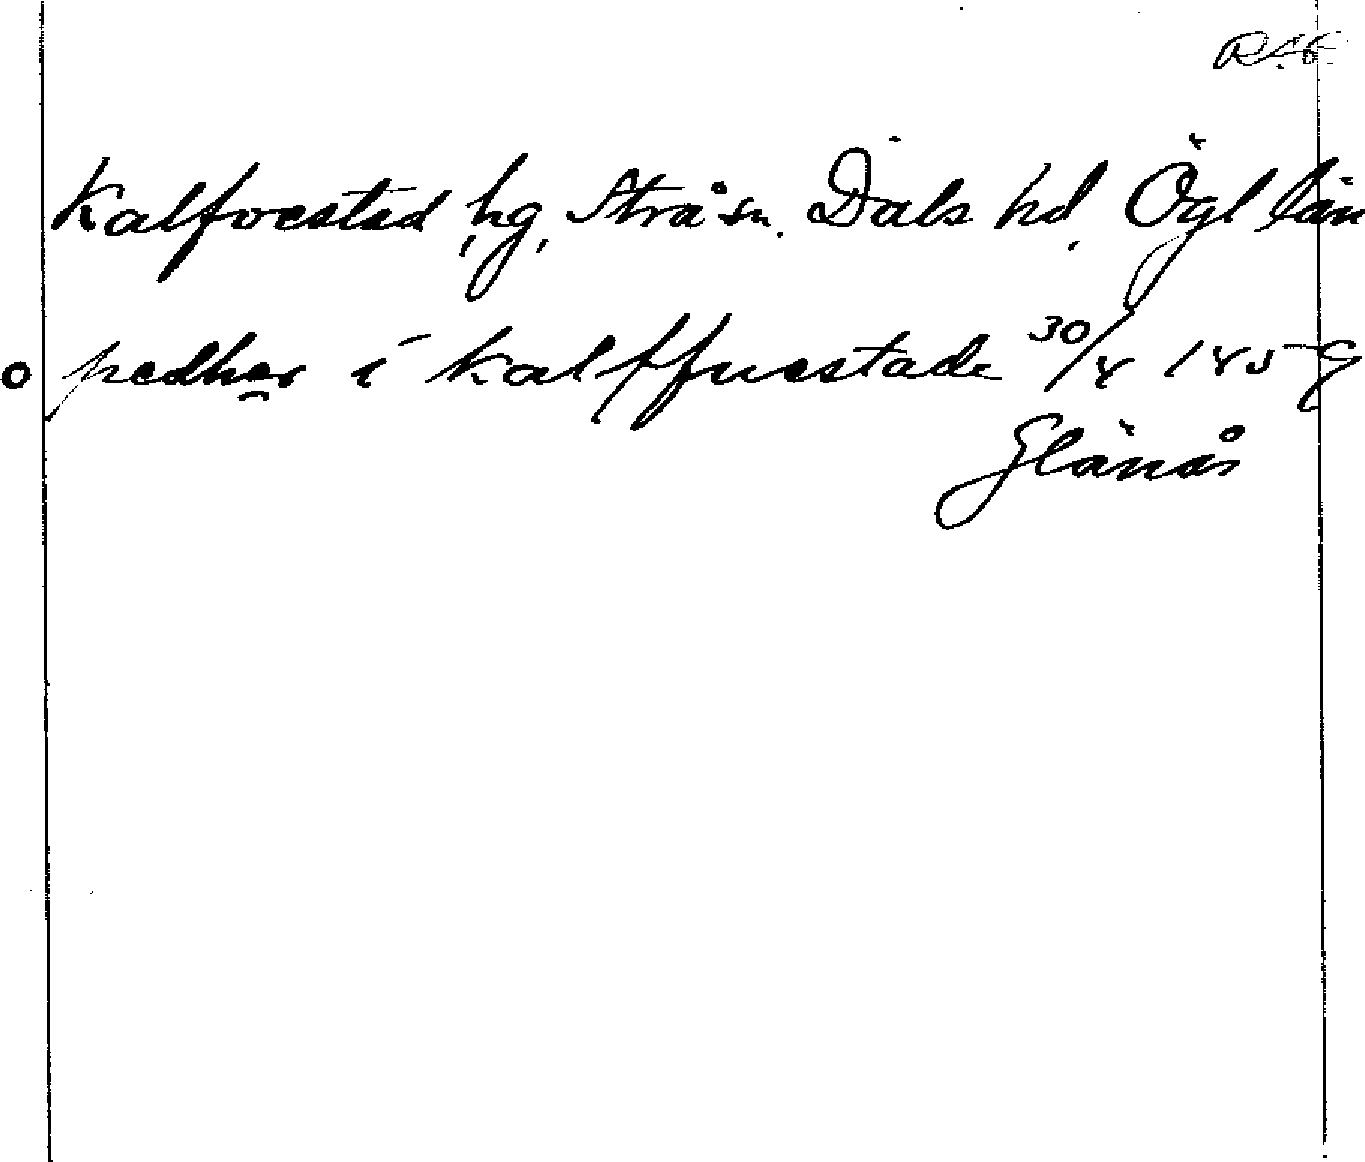 Kalfvestad, hg, Strå sn. Dals hd, Ögl län
o pedher i kalffuestade 30/4 1459
Glänås